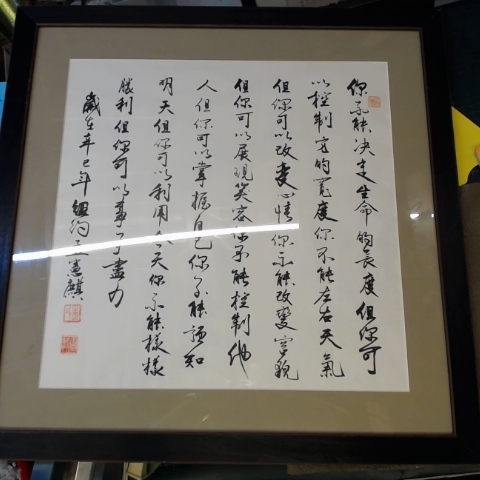 你不能決定生命的長度但你可
以控制它的寬度你不能左右天氣
但你可以改變心情你不能改變容貌
但你可以展現笑容你不能控制他
人但你可以掌握自己你不能預知
明天但你可以利用今天你不能樣樣
勝利但你可以事事盡力
歲在辛巳年 紐約 王憲麒